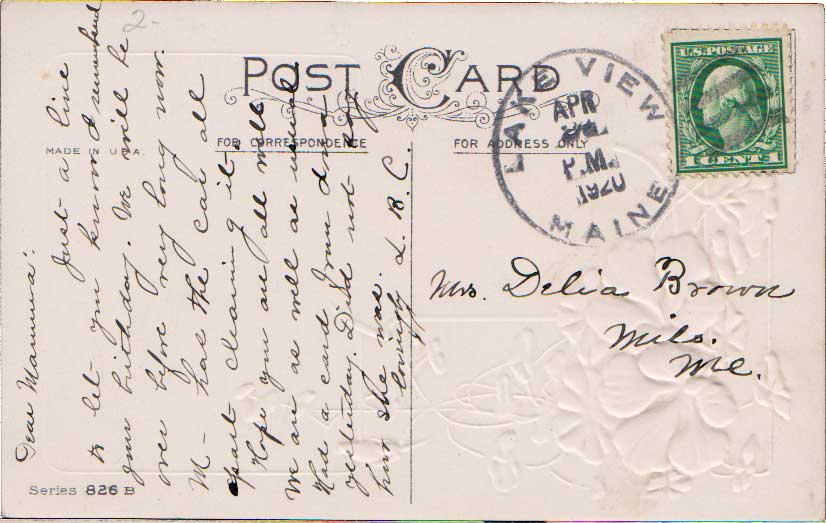 2-
POST CARD
MADE IN U.S.A.
FOR CORRESPONDENCE
FOR ADDRESS ONLY
LAKE VIEW
APR
P.M.
1920
MAINE
U.S. POSTAGE
1 CENT 1
Mrs. Delia Brown
Milo.
Me.
Dear Mamma:
Just a line
to let you know I remembered
your birthday. We will be
over before very long now.
M- has the car all
apart cleaning it.
Hope you are all well
We are as well as usual
Had a card from
yesterday. Did not say
how she was.
Lovingly L. B. C.
Series 826 B